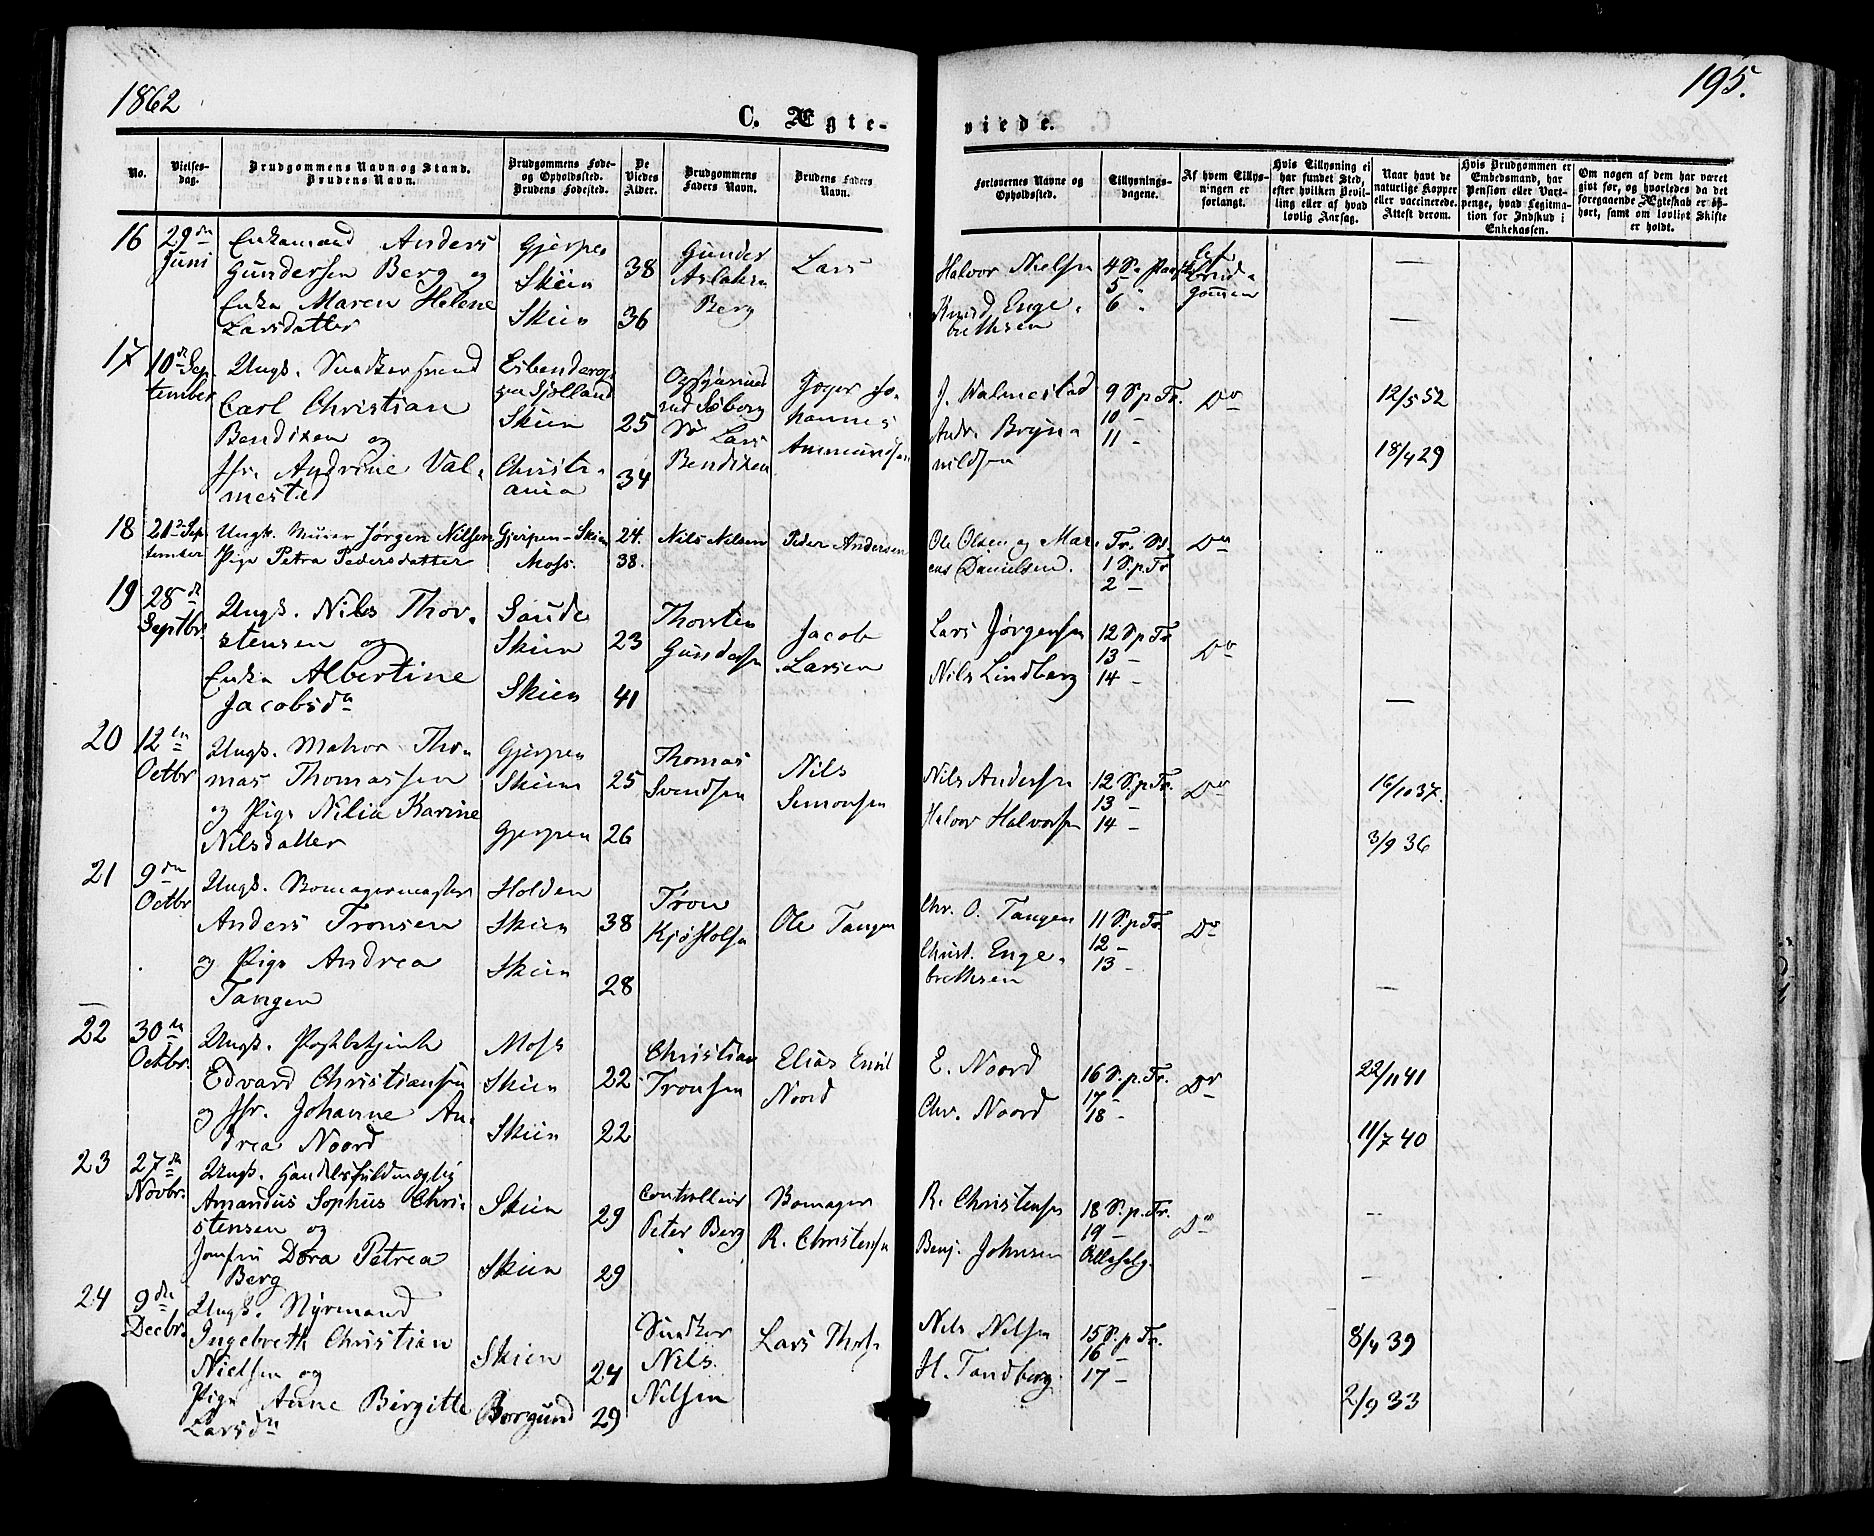 1862
195.
C. Ægte-
viede.
No.
Vielses-
dag.
Brudgommens Navn og Stand.
Brudens Navn.
Brudgommens Føde-
og Opholdssted.
Brudens Fødested.
De
Viedes
Alder.
Brudgommens
Faders Navn.
Brudens Faders
Navn.
Forlovernes Navne og
Opholdssted.
Tillysnings-
dagene.
Af hvem Tillys-
ningen er
forlangt.
Hvis Tillysning ei
har fundet Sted,
efter hvilken Bevil-
ling eller af hvad
lovlig Aarsag.
Naar havt de
naturlige Kopper
eller vaccinerede.
Attest derom.
Hvis Brudgommen er
Embedsmand, har
Pension eller Vart-
penge, hvad Legitima-
tion for Indskud i
Enkekassen.
Om nogen af dem har været
gift før, og hvorledes da det
foregaaende Ægteskab er op-
hørt, samt om lovligt Skifte
er holdt.
16
29de
Juni
Enkemand Anders
Gundersen Berg og
Enke Maren Helene
Larsdatter
Gjerpen
Skien
Skien
38
36
Gunder
Aslaksen
Berg
Lars
Halvor Nielsen
Knud Enge-
brethsen
4 S. p
5
6 "
af
Brud-
gommen
—
—
17
10de Sep
tember
Ungk. Snedkersvend
Carl Christian
Bendixen og
Jfr. Andrine Val-
mested
paa Sjølland
Skien
Christi-
ania
25
34
Lars
Bendixen
Jo-
hannes
Ammundsen
J. Walmestad
Andr. Bryn-
nildsen
9 S p Tr.
10 —
11 —
Do
12/5 52
18/4 29
18
21de Sep
tember
Ungk. Murer Jørgen Nilsen
Pige Petra Pedersdatter
Gjerpen - Skien
Moss.
24.
38.
Nils Nilsen
Peder Andersen
Ole Olsen og Mar-
cus Danielsen.
Tr. S.
1 S. p. Tr
2 —
Do
19
28de
Septbr.
Ungk. Nils Thor-
stensen og
Enke Albertine
Jacobsdr
Saude
Skien
Skien
23
41
Thorsten
Gundersen
Jacob
Larsen
Lars Jørgensen
Nils Lindberg
12 S p Tr
13 —
14 —
Do
—
20
12te
Octbr
Ungk. Thom-
mas Thomassen
og Pige Nilia Karine
Nilsdatter
Gjerpen
Skien
Gjerpen
25
26
Thomas
Svendsen
Nils
Simonsen
Nils Andersen
Halvor Halvorsen
12 S. p. Tr.
13 —
14 —
Do
16/10 37.
3/9 36
21
9de
Octbr
Ungk.
Anders Tronsen
og Pige Andrea
Tangen
Holden
Skien
Skien
38
28
Tron
Kjøstolsen
Ole Tangen
Chr. O. Tangen
Christ. Enge-
brethsen
11 S. p Tr.
12 —
13 —
Do
—
22
30te
Octbr.
Ungk. Postbetjent
Edvard Christiansen
og Jfr. Johanne An-
drea Noord
Moss
Skien
Skien
22
22
Christian
Tronsen
Elias Emil
Noord
E. Noord
Chr. Noord
16 S. p. Tr.
17 —
18 —
Do
22/11 41
11/7 40
23
27de
Novbr.
Ungk. Handelsfuldmægtig
Amandus Sophus Chri-
stensen og
Jomfru Dora Petrea
Berg
Skien
Skien
29
29
Controlleur
Peter Berg
R. Christensen
R. Christensen
Benj. Johnsen
18 S. p. Tr.
19 —
Allehelg.
Do
—
—
24
9de
Decbr.
Ungk. Styrmand
Ingebreth Christian
Nielsen og
Pige Anne Birgitte
Larsdr
Skien
Borgund
24
29
Snedker
Nils
Nilsen
Lars
Nils Nilsen
H. Tandberg.
15 S. p Tr.
16 —
17 —
8/4 39
2/9 33